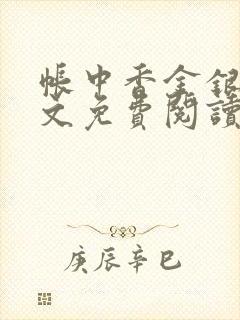 帳中香金銀
文免費閱讀
庚辰辛巳